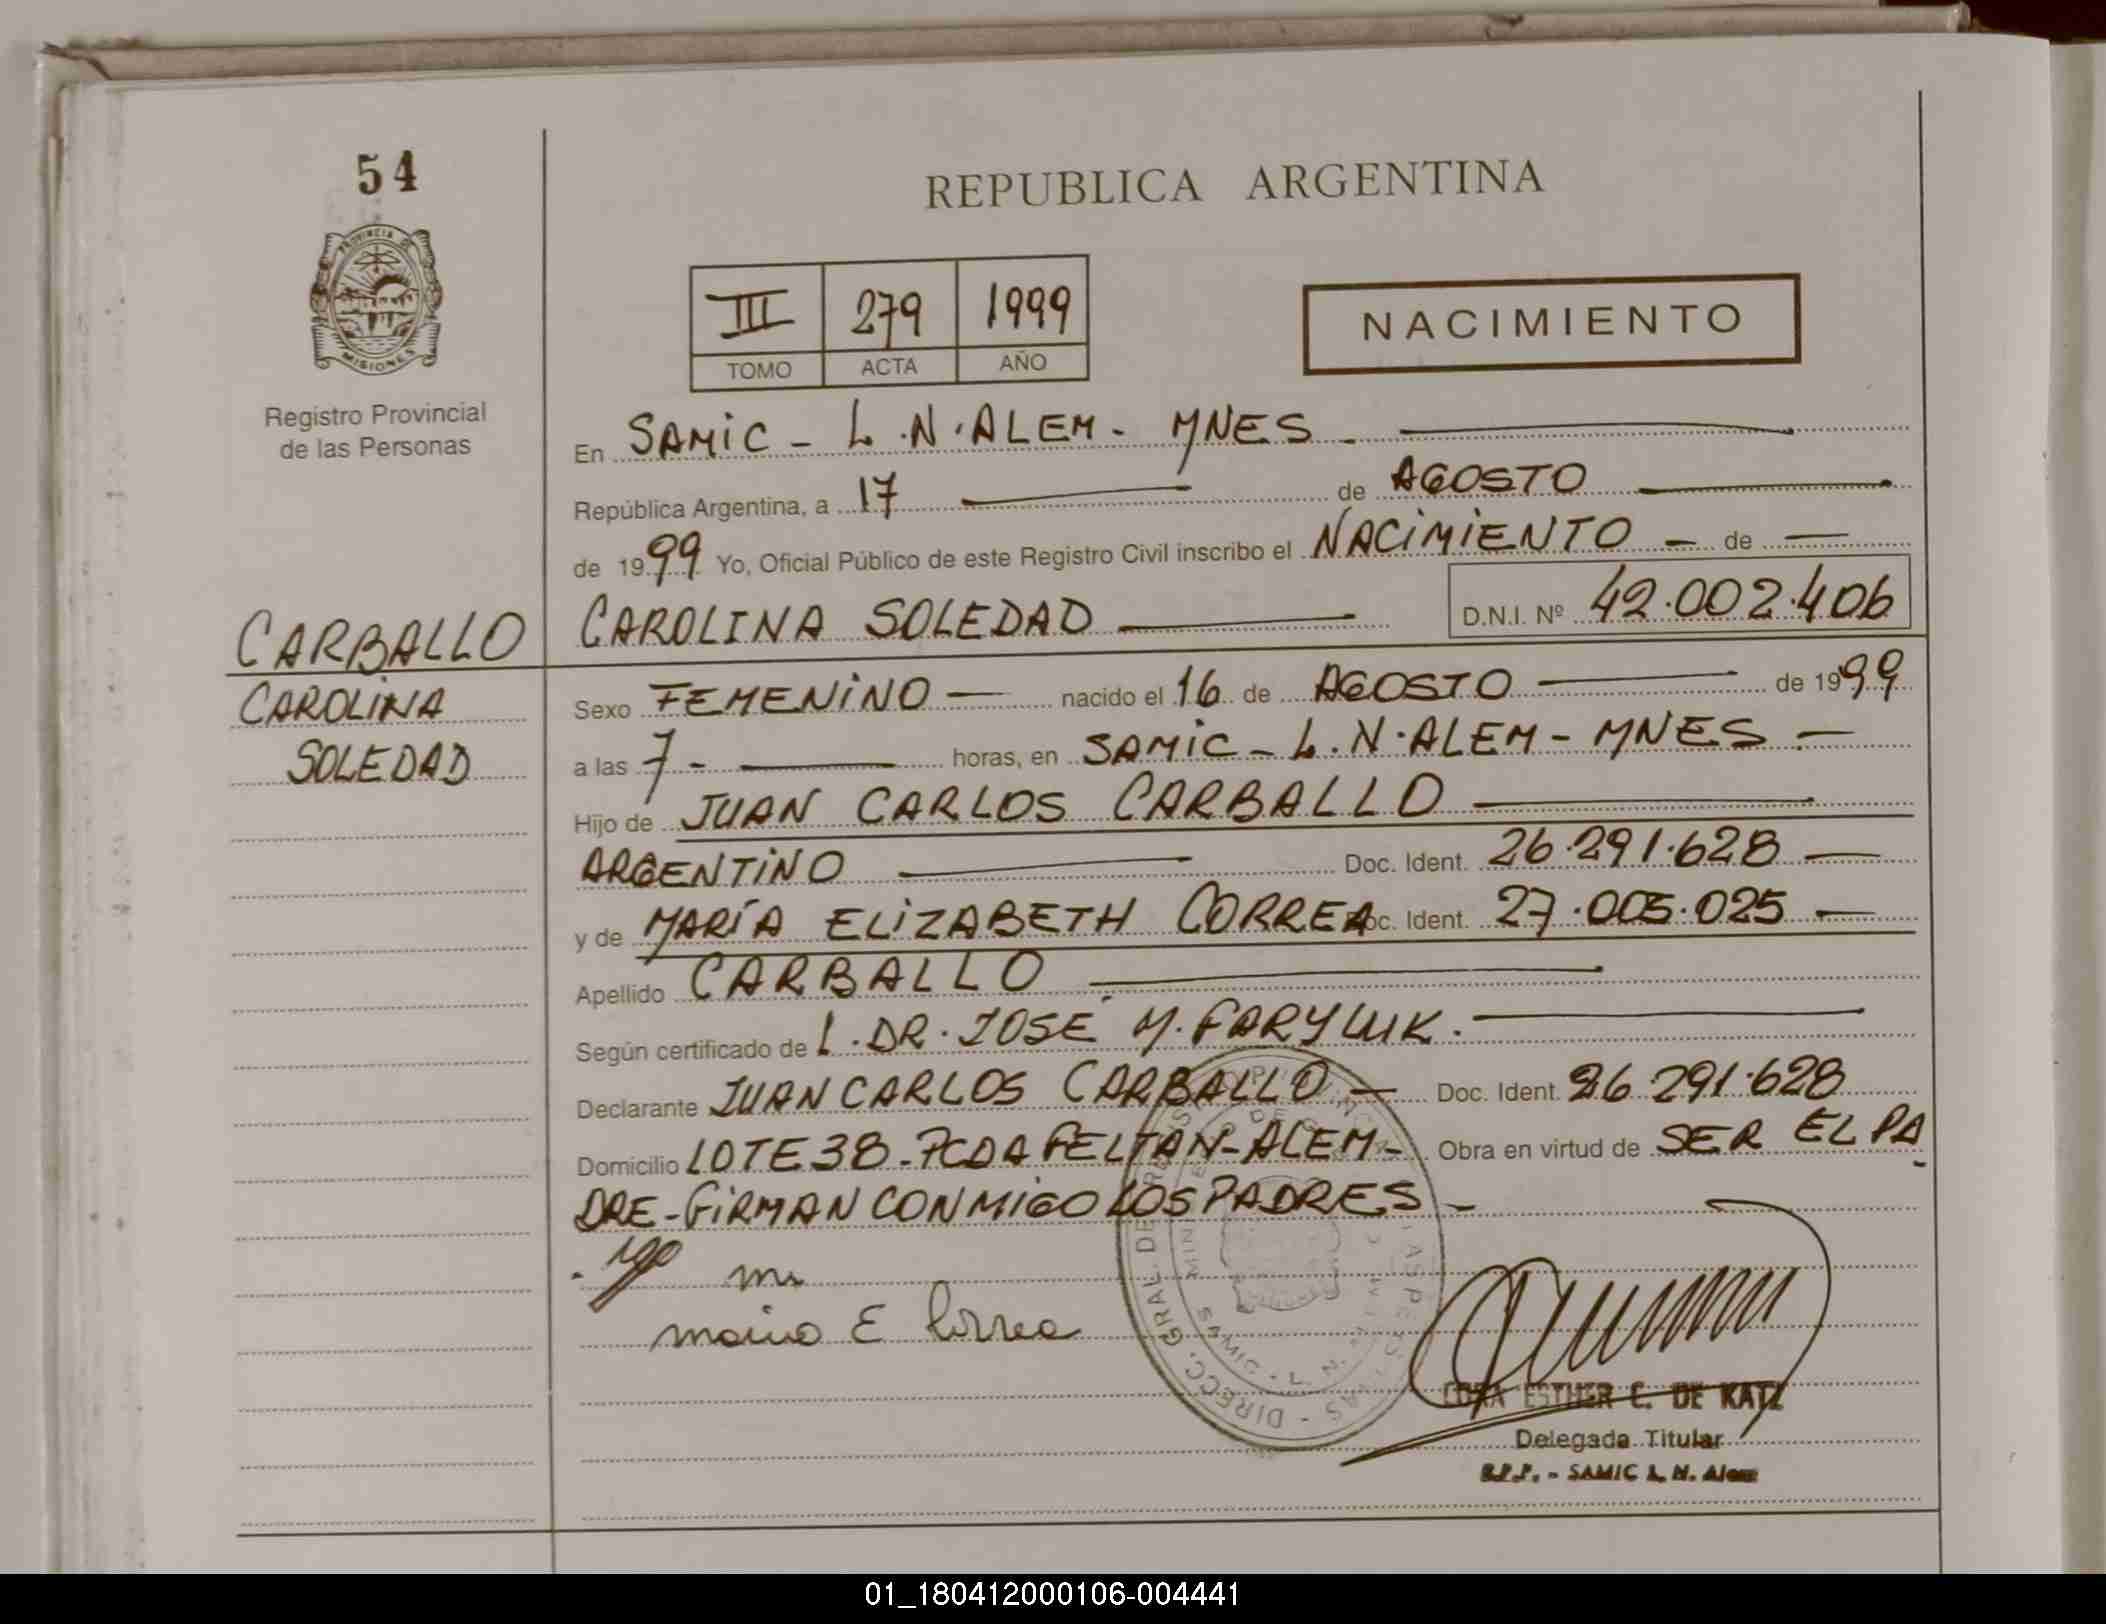 54
PROVINCIA DE
MISIONES
Registro Provincial
de las Personas
REPUBLICA ARGENTINA
III 279 1999
TOMO ACTA AÑO
NACIMIENTO
En SAMIC - L.N.ALEM - MNES -
República Argentina, a 17 de AGOSTO
de 1999 Yo, Oficial Público de este Registro Civil inscribo el NACIMIENTO - de -
CARBALLO CAROLINA SOLEDAD D.N.I. Nº 42.002.406
CAROLINA
SOLEDAD
Sexo FEMENINO - nacido el 16 de AGOSTO de 1999
a las 7 - horas, en SAMIC - L.N.ALEM - MNES -
Hijo de JUAN CARLOS CARBALLO
ARGENTINO Doc. Ident. 26.291.628 -
y de MARÍA ELIZABETH CORREA Doc. Ident. 27.005.025 -
Apellido CARBALLO
Según certificado de L. DR. JOSÉ M. FARYLUK.
Declarante JUAN CARLOS CARBALLO - Doc. Ident. 26.291.628
Domicilio LOTE 38 - PCDA FELTAN - ALEM - Obra en virtud de SER EL PA
DRE - FIRMAN CONMIGO LOS PADRES -
E Correa
DIRECC. GRAL. DE
SAMIC - L. N.
ESTHER C. DE KATZ
Delegada Titular
R.P.P. - SAMIC L. N. Alem
01_180412000106-004441